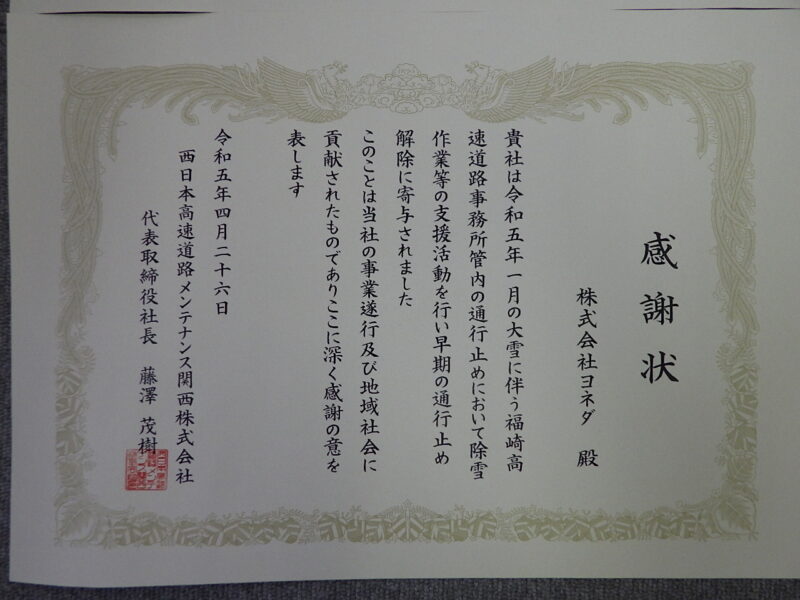 感謝状
株式会社ヨネダ 殿
貴社は令和五年一月の大雪に伴う福崎高
速道路事務所管内の通行止めにおいて除雪
作業等の支援活動を行い早期の通行止め
解除に寄与されました
このことは当社の事業遂行及び地域社会に
貢献されたものでありここに深く感謝の意を
表します
令和五年四月二十六日
西日本高速道路メンテナンス関西株式会社
代表取締役社長 藤澤 茂樹